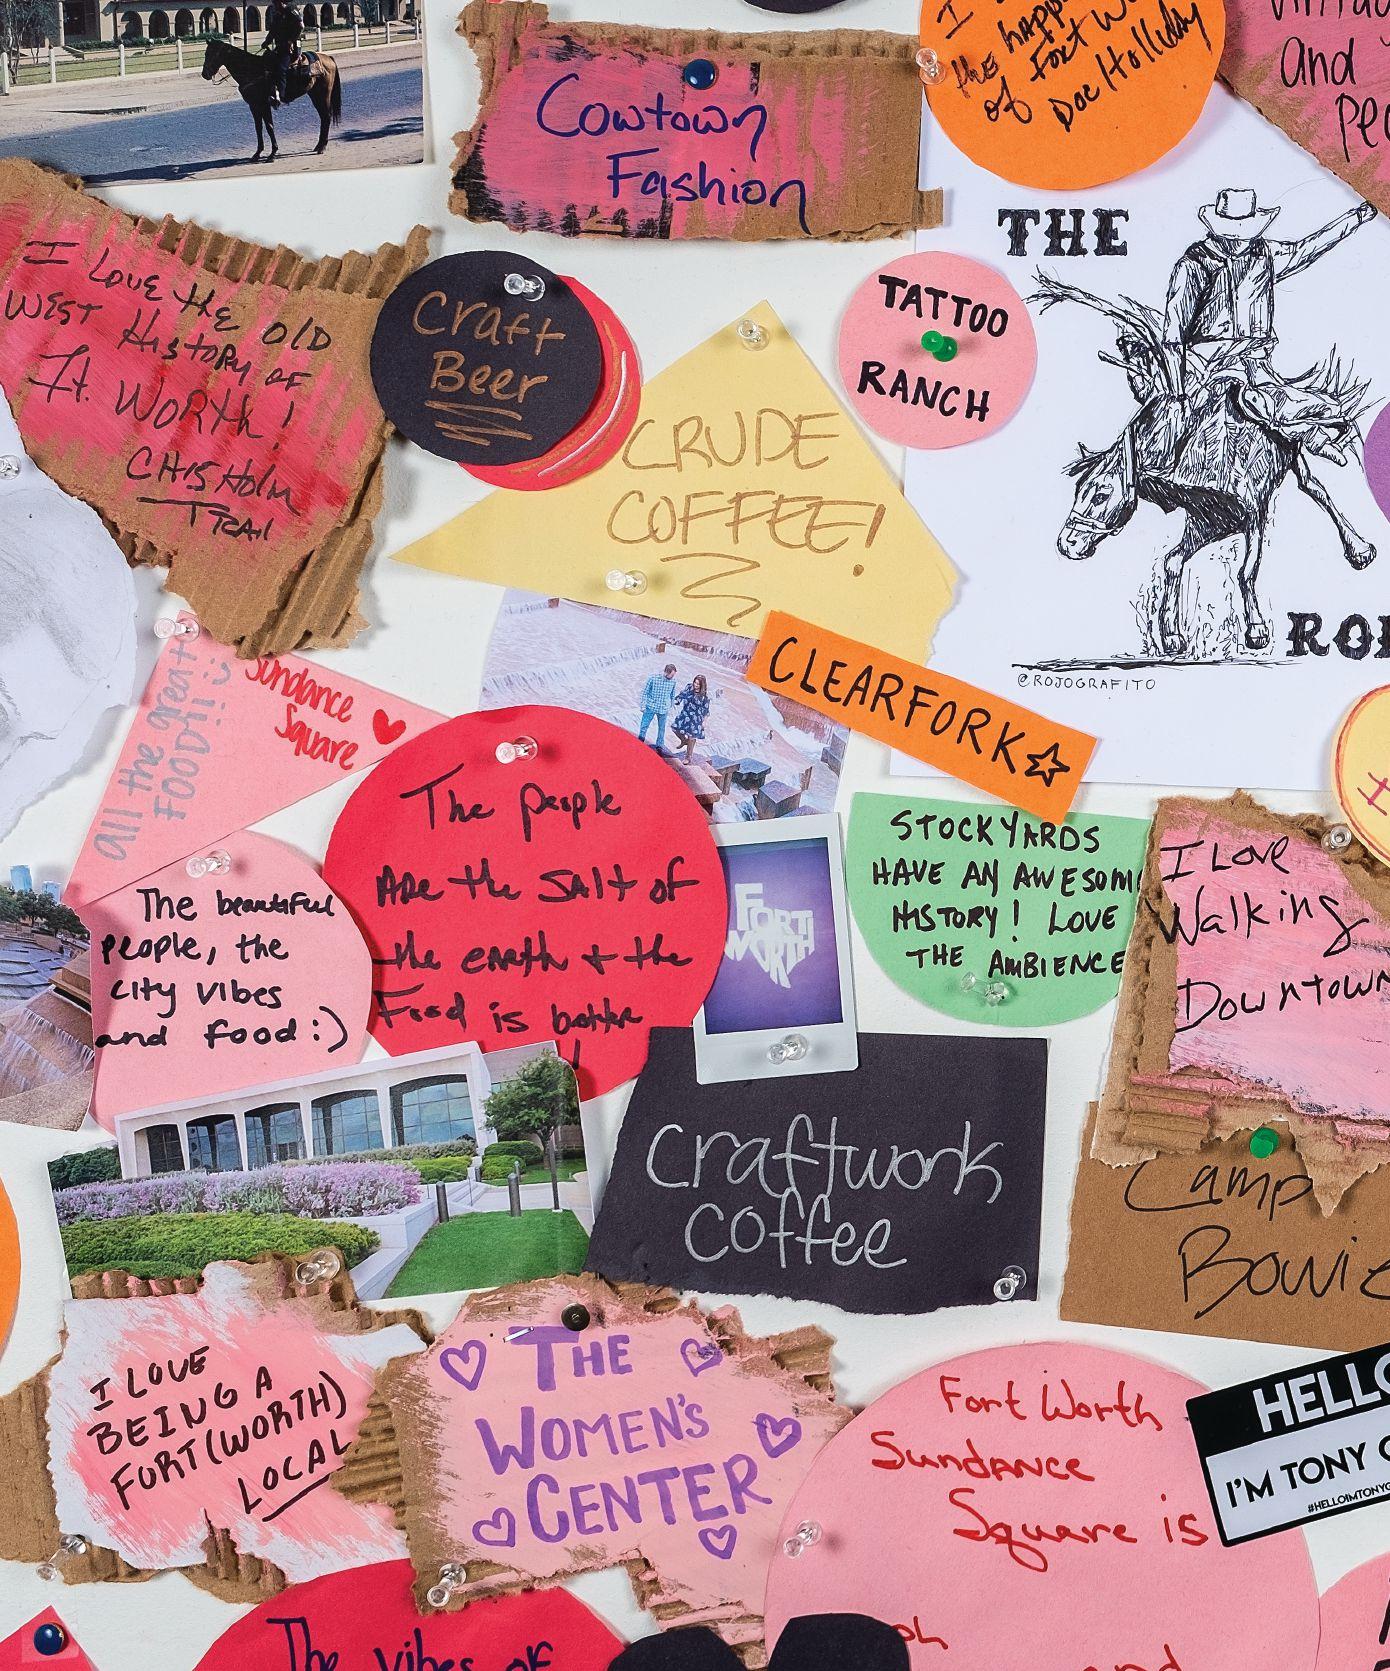 Cowtown
Fashion
I
the happ
of Fort W
Doc Holliday
and
THE
I LOVE the OLD
WEST HistoRy OF
Ft. WORth!
CHISHolm
TRAil
Craft
Beer
TATTOO
RANCH
CRUDE
COFFEE!
@ROJOGRAFITO
CLEARFORK
all the great
FOOD!!! :)
Sundance
Square
The people
ARe the SAlt of
the earth + the
Food is better
!
FORT
WORTH
STOCKYARDS
HAVE AN AWESOM
HISTORY! LOVE
THE AMBIENCE
I Love
Walking
Downtown
The beautiful
people, the
city vibes
and food :)
craftwork
coffee
Camp
Bowie
I LOVE
BEING A
FORT(WORTH)
LOCAL
THE
WOMEN'S
CENTER
Fort Worth
Sundance
Square is
HELLO
I'M TONY
#HELLOIMTONYG
The vibes of